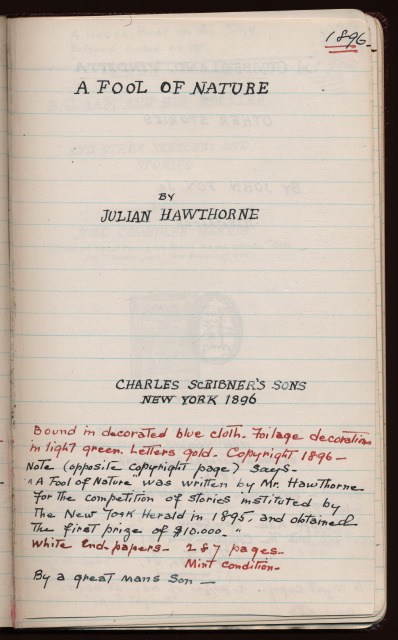 1896.
A FOOL OF NATURE
BY
JULIAN HAWTHORNE
CHARLES SCRIBNER'S SONS
NEW YORK 1896
Bound in decorated blue cloth. Foilage decorations
in light green. Letters gold. Copyright 1896 -
Note (opposite copyright page) says -
"A Fool of Nature was written by Mr. Hawthorne
for the competition of stories instituted by
The New York Herald in 1895, and obtained
The first prize of $10.000. "
White End-papers - 287 pages -
Mint condition -
By a great mans Son -